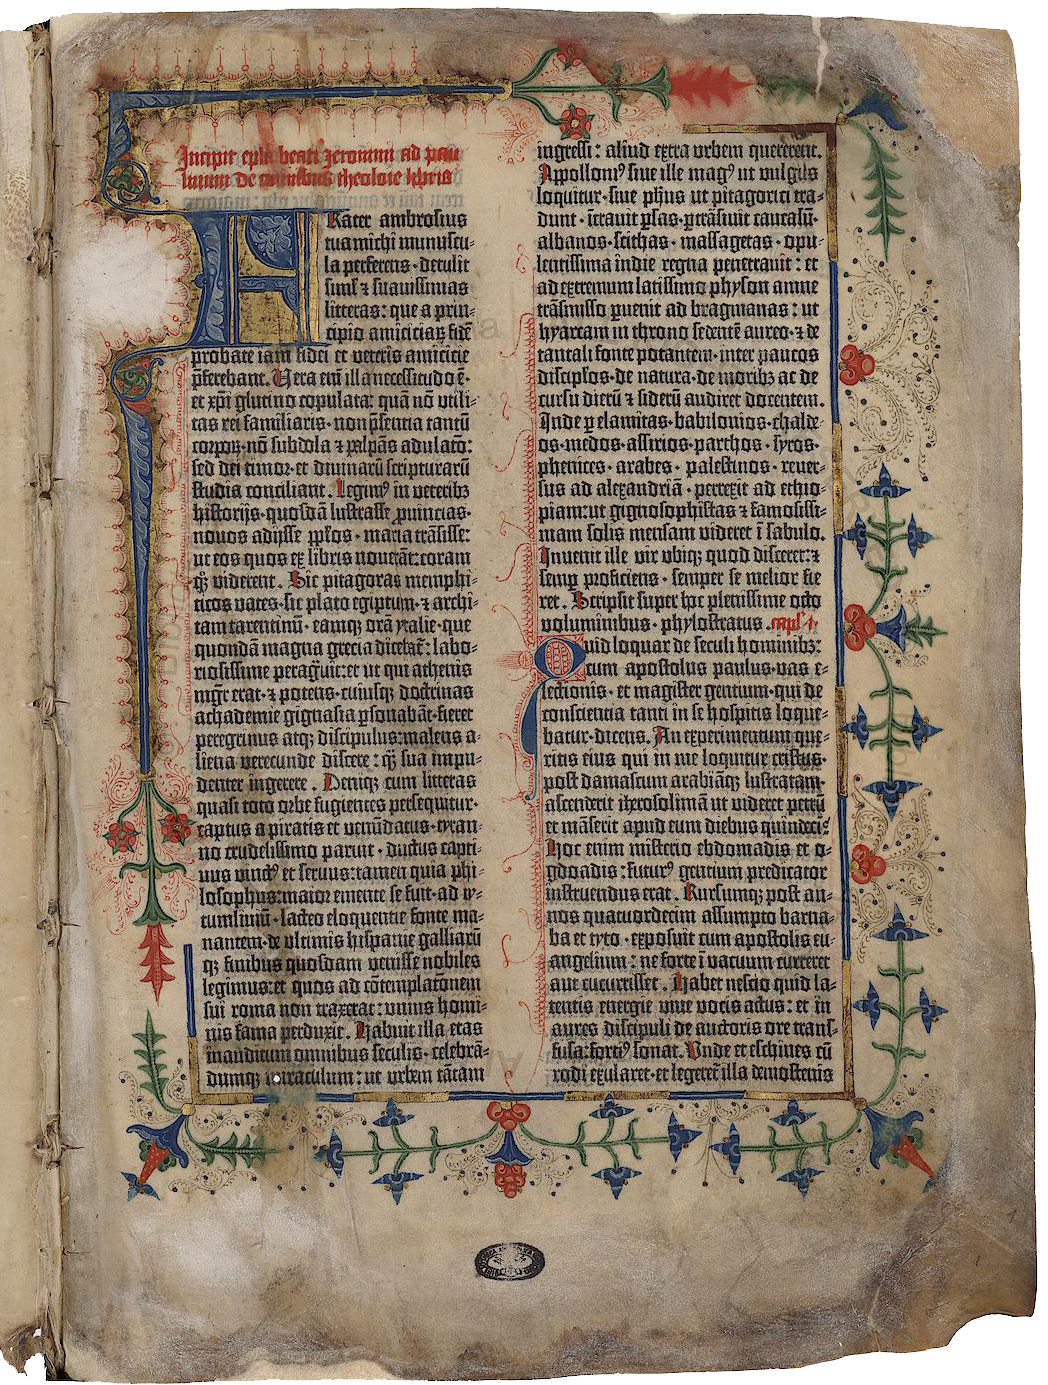 Incipit epla beati Jeronimi ad pau
linum de omnibus theologie libris
Frater ambrosius
tua michi munuscu-
la perferens · detulit
siml' z suauissimas
litteras: que a prin-
cipio amiciciaꝝ fidē
probate iam fidei et veteris amicicie
pferebant. Vera eni illa necessitudo ē·
et xpi glutino copulata: quā nō utili-
tas rei familiaris · non pñsentia tantū
corpoꝝ· nō subdola z palpās adulatō:
sed dei timor· et diuinarū scripturarū
studia conciliant. Legimꝰ in veteribꝫ
historijs· quosdā lustrasse ꝓuincias·
nouos adijsse pplos · maria trāsisse:
ut eos quos ex libris nouerāt: coram
qꝫ viderent. Sic pitagoras memphi-
ticos vates· sic plato egiptum· z archi-
tam tarentinū · eamqꝫ orā ytalie · que
quondā magna grecia dicebat: labo-
riosissime peragrauit: et ut qui athenis
mgr erat· z potens· cuiusqꝫ doctrinas
achademie gignasia ꝑsonabāt· fieret
peregrinus atqꝫ discipulus: malens a-
liena verecunde discere: qꝫ sua impu-
denter ingerere. Deniqꝫ cum litteras
quasi toto orbe fugientes persequitur·
captus a piratis et venūdatus· tyran-
no crudelissimo paruit · ductus capti-
uus vinctꝰ et seruus: tamen quia phi-
losophus: maior emente se fuit· ad ty-
tumliuiū · lacteo eloquentie fonte ma-
nantem· de vltimis hispanie galliarū
qꝫ finibus quosdam venisse nobiles
legimus: et quos ad cōtemplatōnem
sui roma non traxerat: vnius homi-
nis fama perduxit. Habuit illa etas
inauditum omnibus seculis · celebrā-
dumqꝫ miraculum: ut vrbem tātam
ingressi: aliud extra vrbem quererent.
Appolloniꝰ siue ille magꝰ ut vulgus
loquitur· siue phus ut pitagorici tra-
dunt · ītrauit psas· ꝑtrāsiuit caucasū·
albanos · scithas · massagetas · opu-
lentissima indie regna penetrauit: et
ad extremum latissimo physon amne
trāsmisso ꝑuenit ad bragmanas: ut
hyarcam in throno sedentē aureo · z de
tantali fonte potantem· inter paucos
disciplos· de natura· de moribꝫ ac de
cursu dierū z siderū audiret docentem.
Inde ꝑ elamitas· babilonios· chalde-
os· medos· assirios· parthos · syros·
phenices · arabes · palestinos · reuer-
sus ad alexandriā · perrexit ad ethio-
piam: ut gignosophistas z famosissi-
mam solis mensam videret ī sabulo.
Inuenit ille vir vbiqꝫ quod disceret: z
semꝑ proficiens · semper se melior fie
ret. Scripsit super hoc plenissime octo
voluminibus · phylostratus . capl'. i.
Quid loquar de seculi hominibꝫ:
cum apostolus paulus· vas e-
lectionis · et magister gentium· qui de
conscientia tanti in se hospitis loque-
batur· dicens. An experimentum que-
ritis eius qui in me loquitur cristus·
post damascum arabiāqꝫ lustratam·
ascenderit iherosolimā ut videret petrū
et māserit apud eum diebus quindeci.
Hoc enim misterio ebdomadis et o-
gdoadis: futurꝰ gentium predicator
instruendus erat. Rursumqꝫ post an-
nos quatuordecim assumpto barna-
ba et tyto · exposuit cum apostolis eu-
angelium: ne forte ī vacuum curreret
aut cucurrisset. Habet nescio quid la-
tentis energie viue vocis actus: et in
aures discipuli de auctoris ore trans-
fusa: fortiꝰ sonat. Vnde et eschines cū
rodi exularet· et legeret illa demostenis